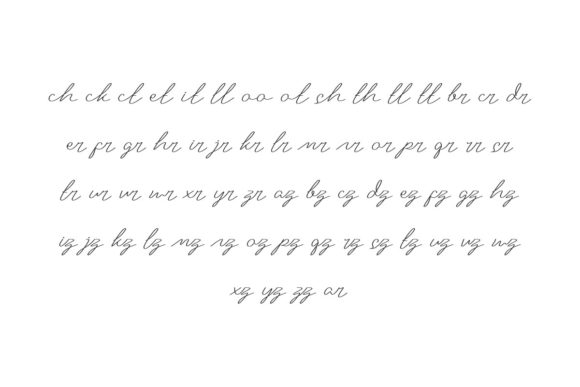 ch ck ct et it ll oo ot sh th tl tt br cr dr
er fr gr hr ir jr kr lr mr nr or pr qr rr sr
tr ur vr wr xr yr zr az bz cz dz ez fz gz hz
iz jz kz lz mz nz oz pz qz rz sz tz uz vz wz
xz yz zz ar